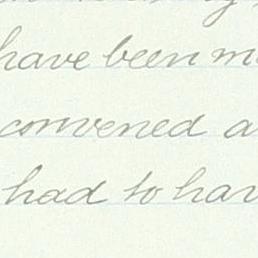 have been m
convened a
had to hav